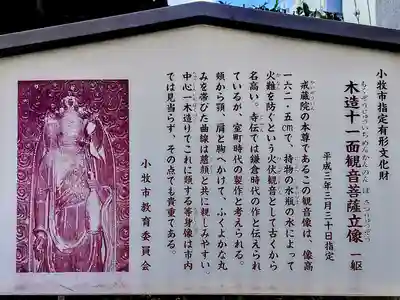 小牧市指定有形文化財
木造十一面観音菩薩立像 一躯
もくぞうじゅういちめんかんのんぼさつりゅうぞう
平成三年三月三十日指定
戒蔵院の本尊であるこの観音像は、像高
一六二・五㎝で、持物の水瓶の水によって
火難を防ぐという火伏観音として古くから
名高い。寺伝では鎌倉時代の作と伝えられ
ているが、室町時代の製作と考えられる。
頬から顎、肩と胸へかけて、ふくよかな丸
みを帯びた曲線は慈顔と共に親しみやすい。
中心一木造りでこれに類する等身像は市内
では見当らず、その点でも貴重である。
小牧市教育委員会